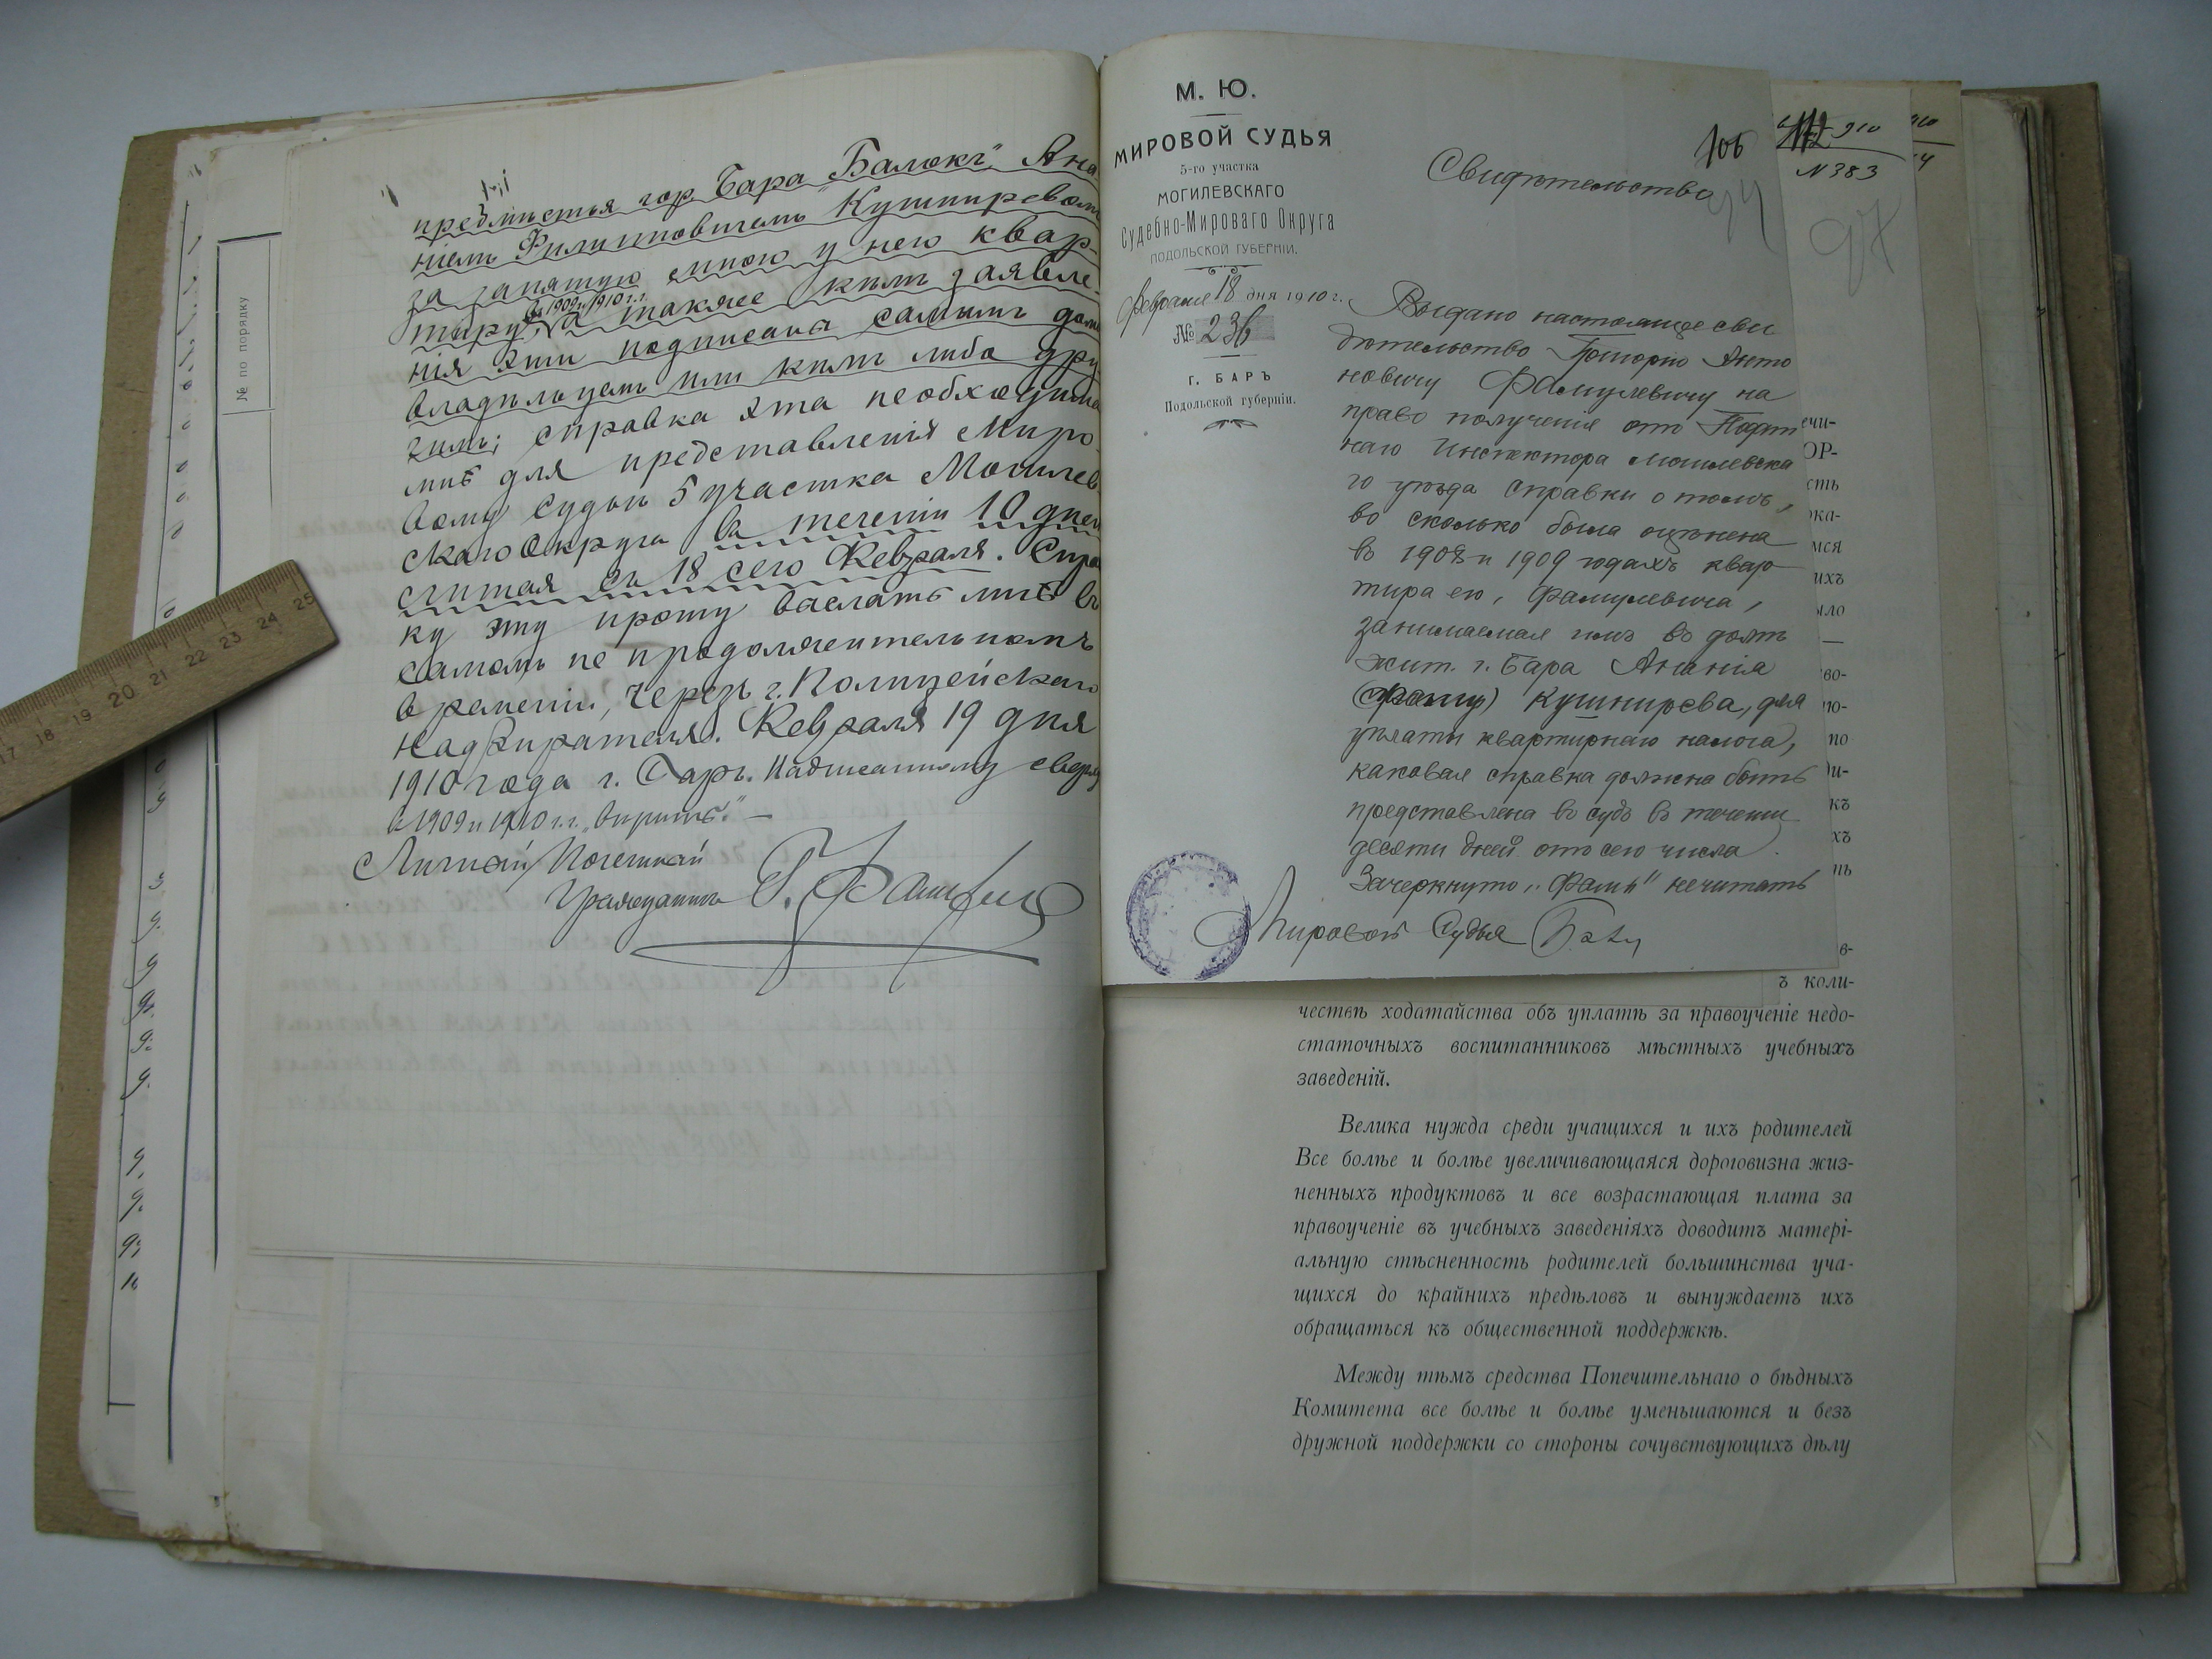 № по порядку
предмѣстья гор. Бара „Балокъ“ Ана-
ніемъ Филипповичемъ Кушниревымъ
за занятую мною у него квар-
тиру въ 1909 и 1910 г.г., а также кѣмъ заявле-
нія эти подписаны самимъ домо
владѣльцемъ или кѣмъ либо дру
гимъ; справка эта необходима
мнѣ для представленія Миро-
вому Судьи 5 участка Могилев-
скаго Округа въ теченіи 10 дней
считая съ 18 сего Февраля. Справ
ку эту прошу выслать мнѣ въ
самомъ не продолжительномъ
времени, черезъ г. Полицейскаго
Надзирателя. Февраля 19 дня
1910 года г. Баръ. Надписанному сверху
„въ 1909 и 1910 г.г.“ вѣрить. —
Личный Почетный
Гражданинъ Г.
М. Ю.
МИРОВОЙ СУДЬЯ
5-го участка
МОГИЛЕВСКАГО
Судебно-Мироваго Округа
ПОДОЛЬСКОЙ ГУБЕРНІИ.
Февраля 18 дня 1910 г.
№ 236
Г. БАРЪ
Подольской губерніи.
106
Свидѣтельство
Выдано настоящее сви
дѣтельство Григорію Анто
новичу Фамулевичу на
право полученія отъ Подат
наго Инспектора Могилевска
го уѣзда справки о томъ,
во сколько была оцѣнена
въ 1908 и 1909 годахъ квар
тира его, Фамулевича,
занимаемая имъ въ домѣ
жит. г. Бара Ананія
Кушнирева, для
уплаты квартирнаго налога,
каковая справка должна быть
представлена въ судъ въ теченіи
десяти дней отъ сего числа.
Зачеркнуто „Фаму“ не читать
Мировой Судья
910
№ 383
97
ечи-
ОР-
сть
ока-
мся
ихъ
ыло
—
во-
по
ди-
къ
хъ
нь
в-
ъ коли-
чествѣ ходатайства объ уплатѣ за правоученіе недо-
статочныхъ воспитанниковъ мѣстныхъ учебныхъ
заведеній.
Велика нужда среди учащихся и ихъ родителей
Все болѣе и болѣе увеличивающаяся дороговизна жиз-
ненныхъ продуктовъ и все возрастающая плата за
правоученіе въ учебныхъ заведеніяхъ доводитъ матері-
альную стѣсненность родителей большинства уча-
щихся до крайнихъ предѣловъ и вынуждаетъ ихъ
обращаться къ общественной поддержкѣ.
Между тѣмъ средства Попечительнаго о бѣдныхъ
Комитета все болѣе и болѣе уменьшаются и безъ
дружной поддержки со стороны сочувствующихъ дѣлу
17 18 19 20 21 22 23 24 25